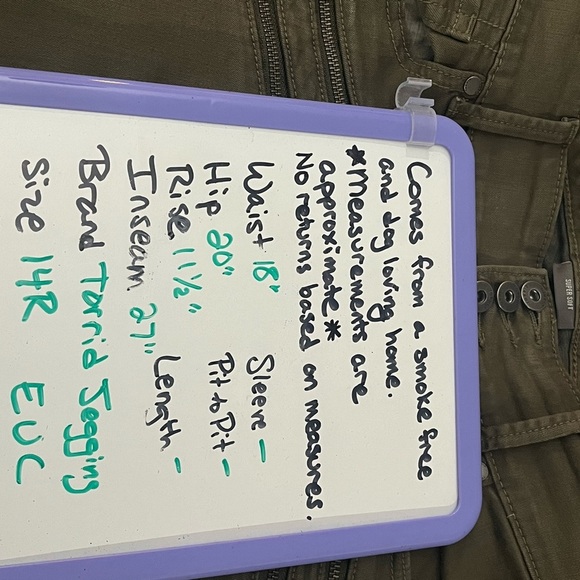 SUPER SOFT
Comes from a smoke free
and dog loving home.
*Measurements are
approximate*
No returns based on measures.
Waist 18" Sleeve -
Hip 20" Pit to Pit -
Rise 11 1/2" Length -
Inseam 27"
Brand Torrid Jegging
Size 14R EUC